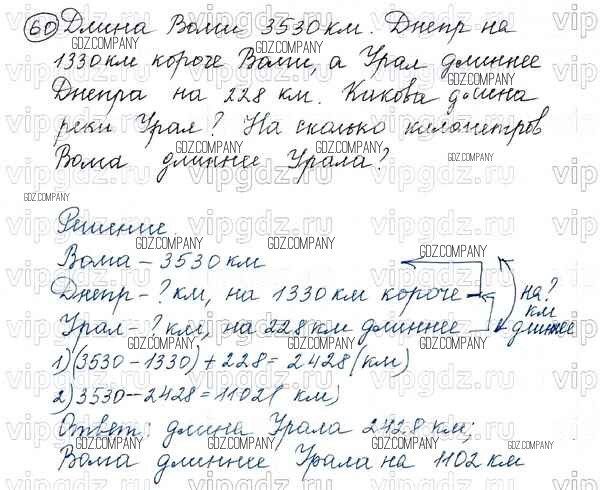 60 Длина Волги 3530 км. Днепр на
1330 км короче Волги, а Урал длиннее
Днепра на 228 км. Какова длина
реки Урал? На сколько километров
Волга длиннее Урала?
Решение
Волга – 3530 км
Днепр - ? км, на 1330 км короче
Урал - ? км, на 228 км длиннее
на ?
км
длиннее
1) (3530 – 1330) + 228 = 2428 (км)
2) 3530 – 2428 = 1102 (км)
Ответ: длина Урала 2428 км;
Волга длиннее Урала на 1102 км
vipgdz.ru
GDZ.COMPANY